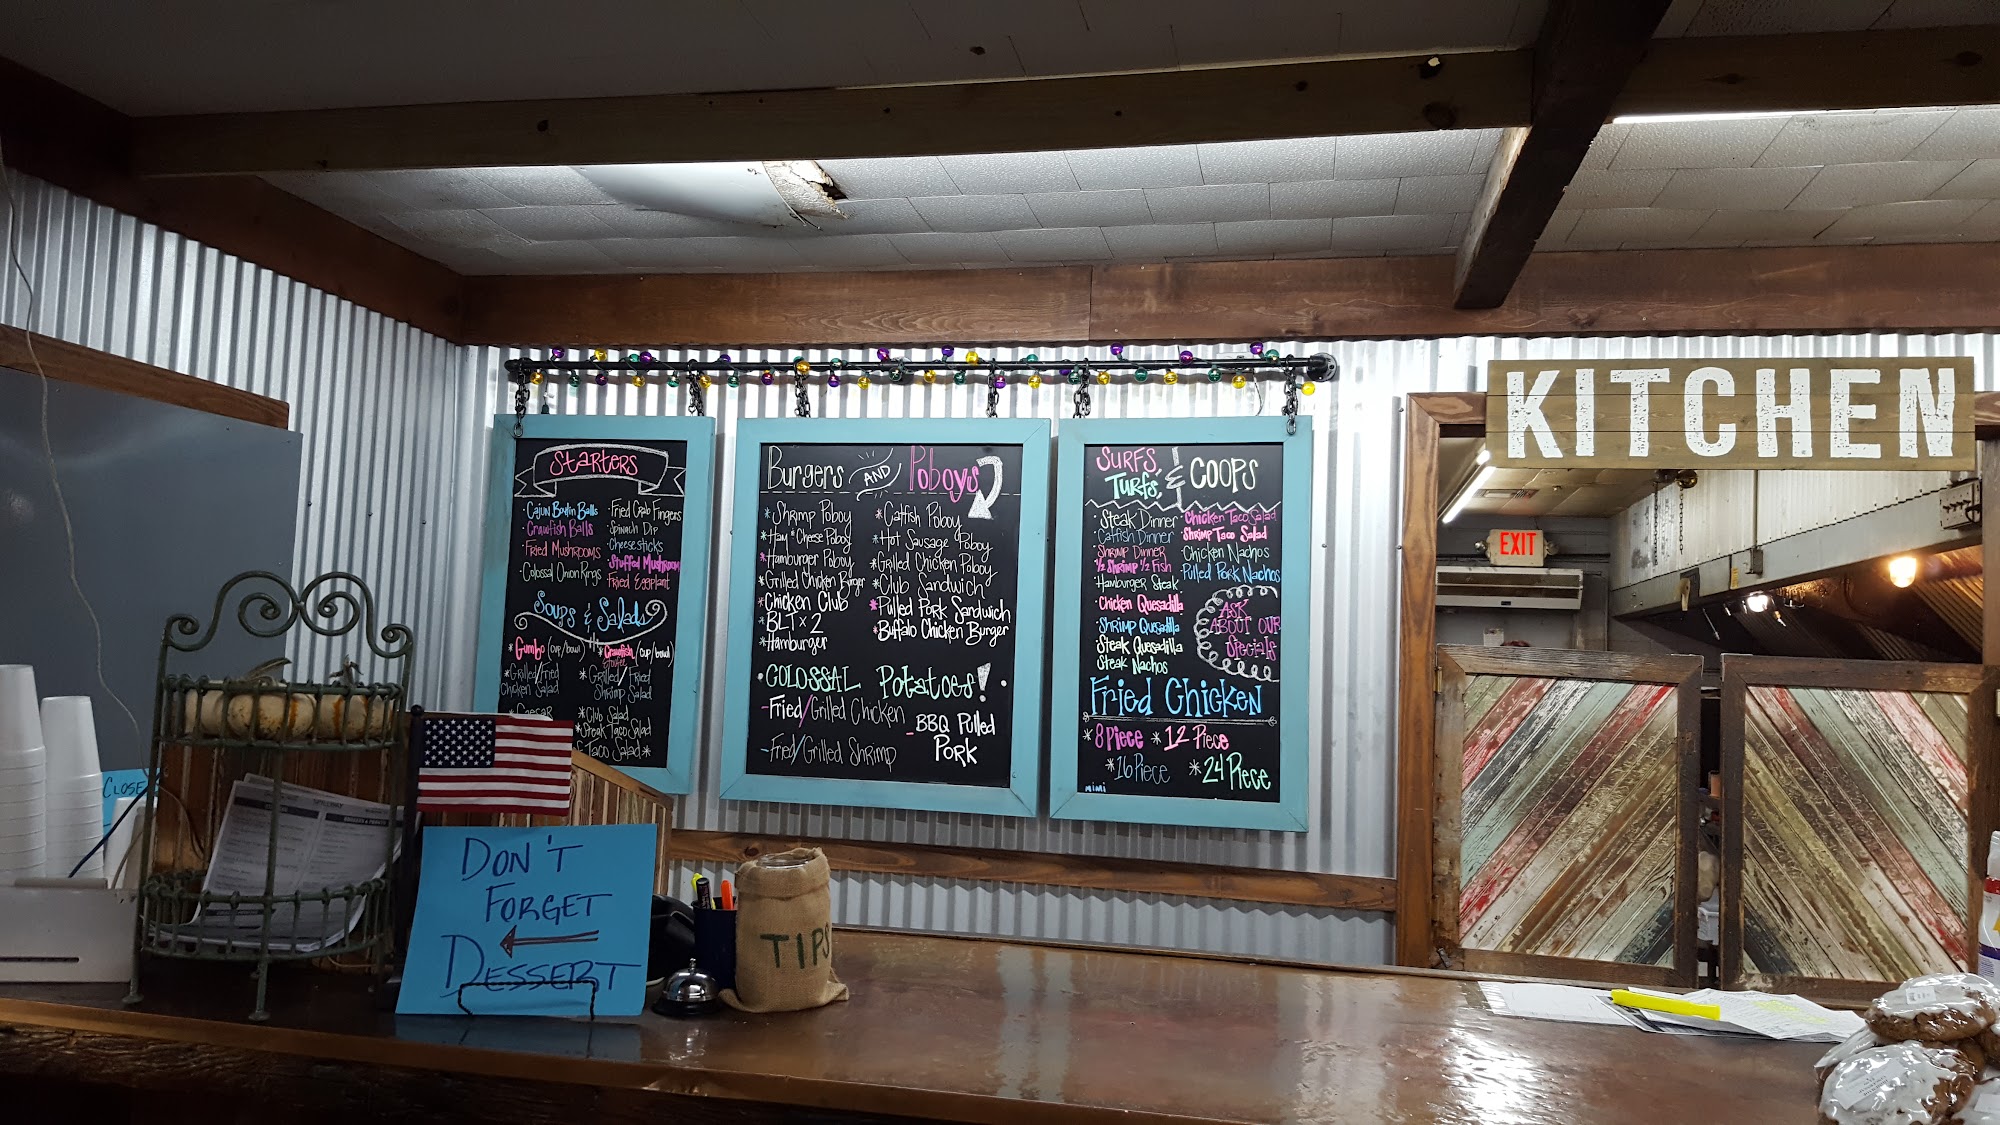 Starters
·Cajun Boudin Balls
·Crawfish Balls
·Fried Mushrooms
·Colossal Onion Rings
·Fried Crab Fingers
·Spinach Dip
·Cheesesticks
·Stuffed Mushroom
·Fried Eggplant
Soups & Salads
*Gumbo (cup/bowl)
*Crawfish (cup/bowl)
*Grilled/Fried
Chicken Salad
*Caesar
*Grilled/Fried
Shrimp Salad
*Club Salad
*Steak Taco Salad
Taco Salad*
Burgers AND Poboys
*Shrimp Poboy
*Ham*Cheese Poboy
*Hamburger Poboy
*Grilled Chicken Burger
*Chicken Club
*BLT x 2
*Hamburger
*Catfish Poboy
*Hot Sausage Poboy
*Grilled Chicken Poboy
*Club Sandwich
*Pulled Pork Sandwich
*Buffalo Chicken Burger
·COLOSSAL Potatoes!·
-Fried/Grilled Chicken
-Fried/Grilled Shrimp
-BBQ Pulled
Pork
SURFS,
Turfs,
& COOPS
·Steak Dinner
·Catfish Dinner
·Shrimp Dinner
·½ Shrimp ½ Fish
·Hamburger Steak
·Chicken Quesadilla
·Shrimp Quesadilla
·Steak Quesadilla
·Steak Nachos
·Chicken Taco Salad
·Shrimp Taco Salad
·Chicken Nachos
·Pulled Pork Nachos
ASK
ABOUT OUR
Specials
Fried Chicken
*8 Piece *12 Piece
*16 Piece *24 Piece
MIMI
KITCHEN
EXIT
CLOSE
DON'T
FORGET
DESSERT
TIPS